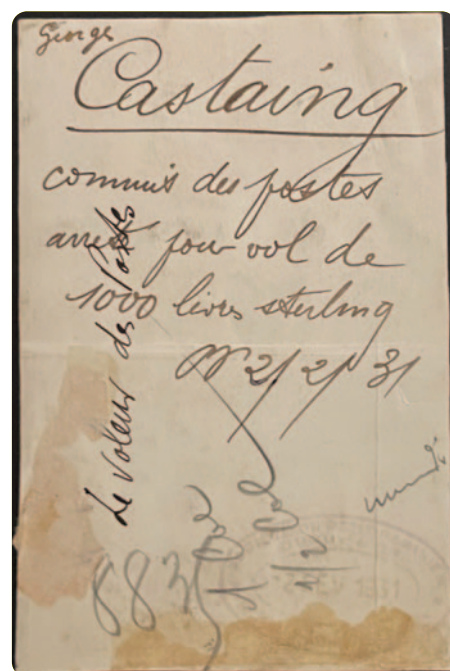 Georges
Castaing
commis des postes
arrêté pour vol de
1000 livres sterling
N 2/2/31
Le voleur des Postes
883
1 col
1/2